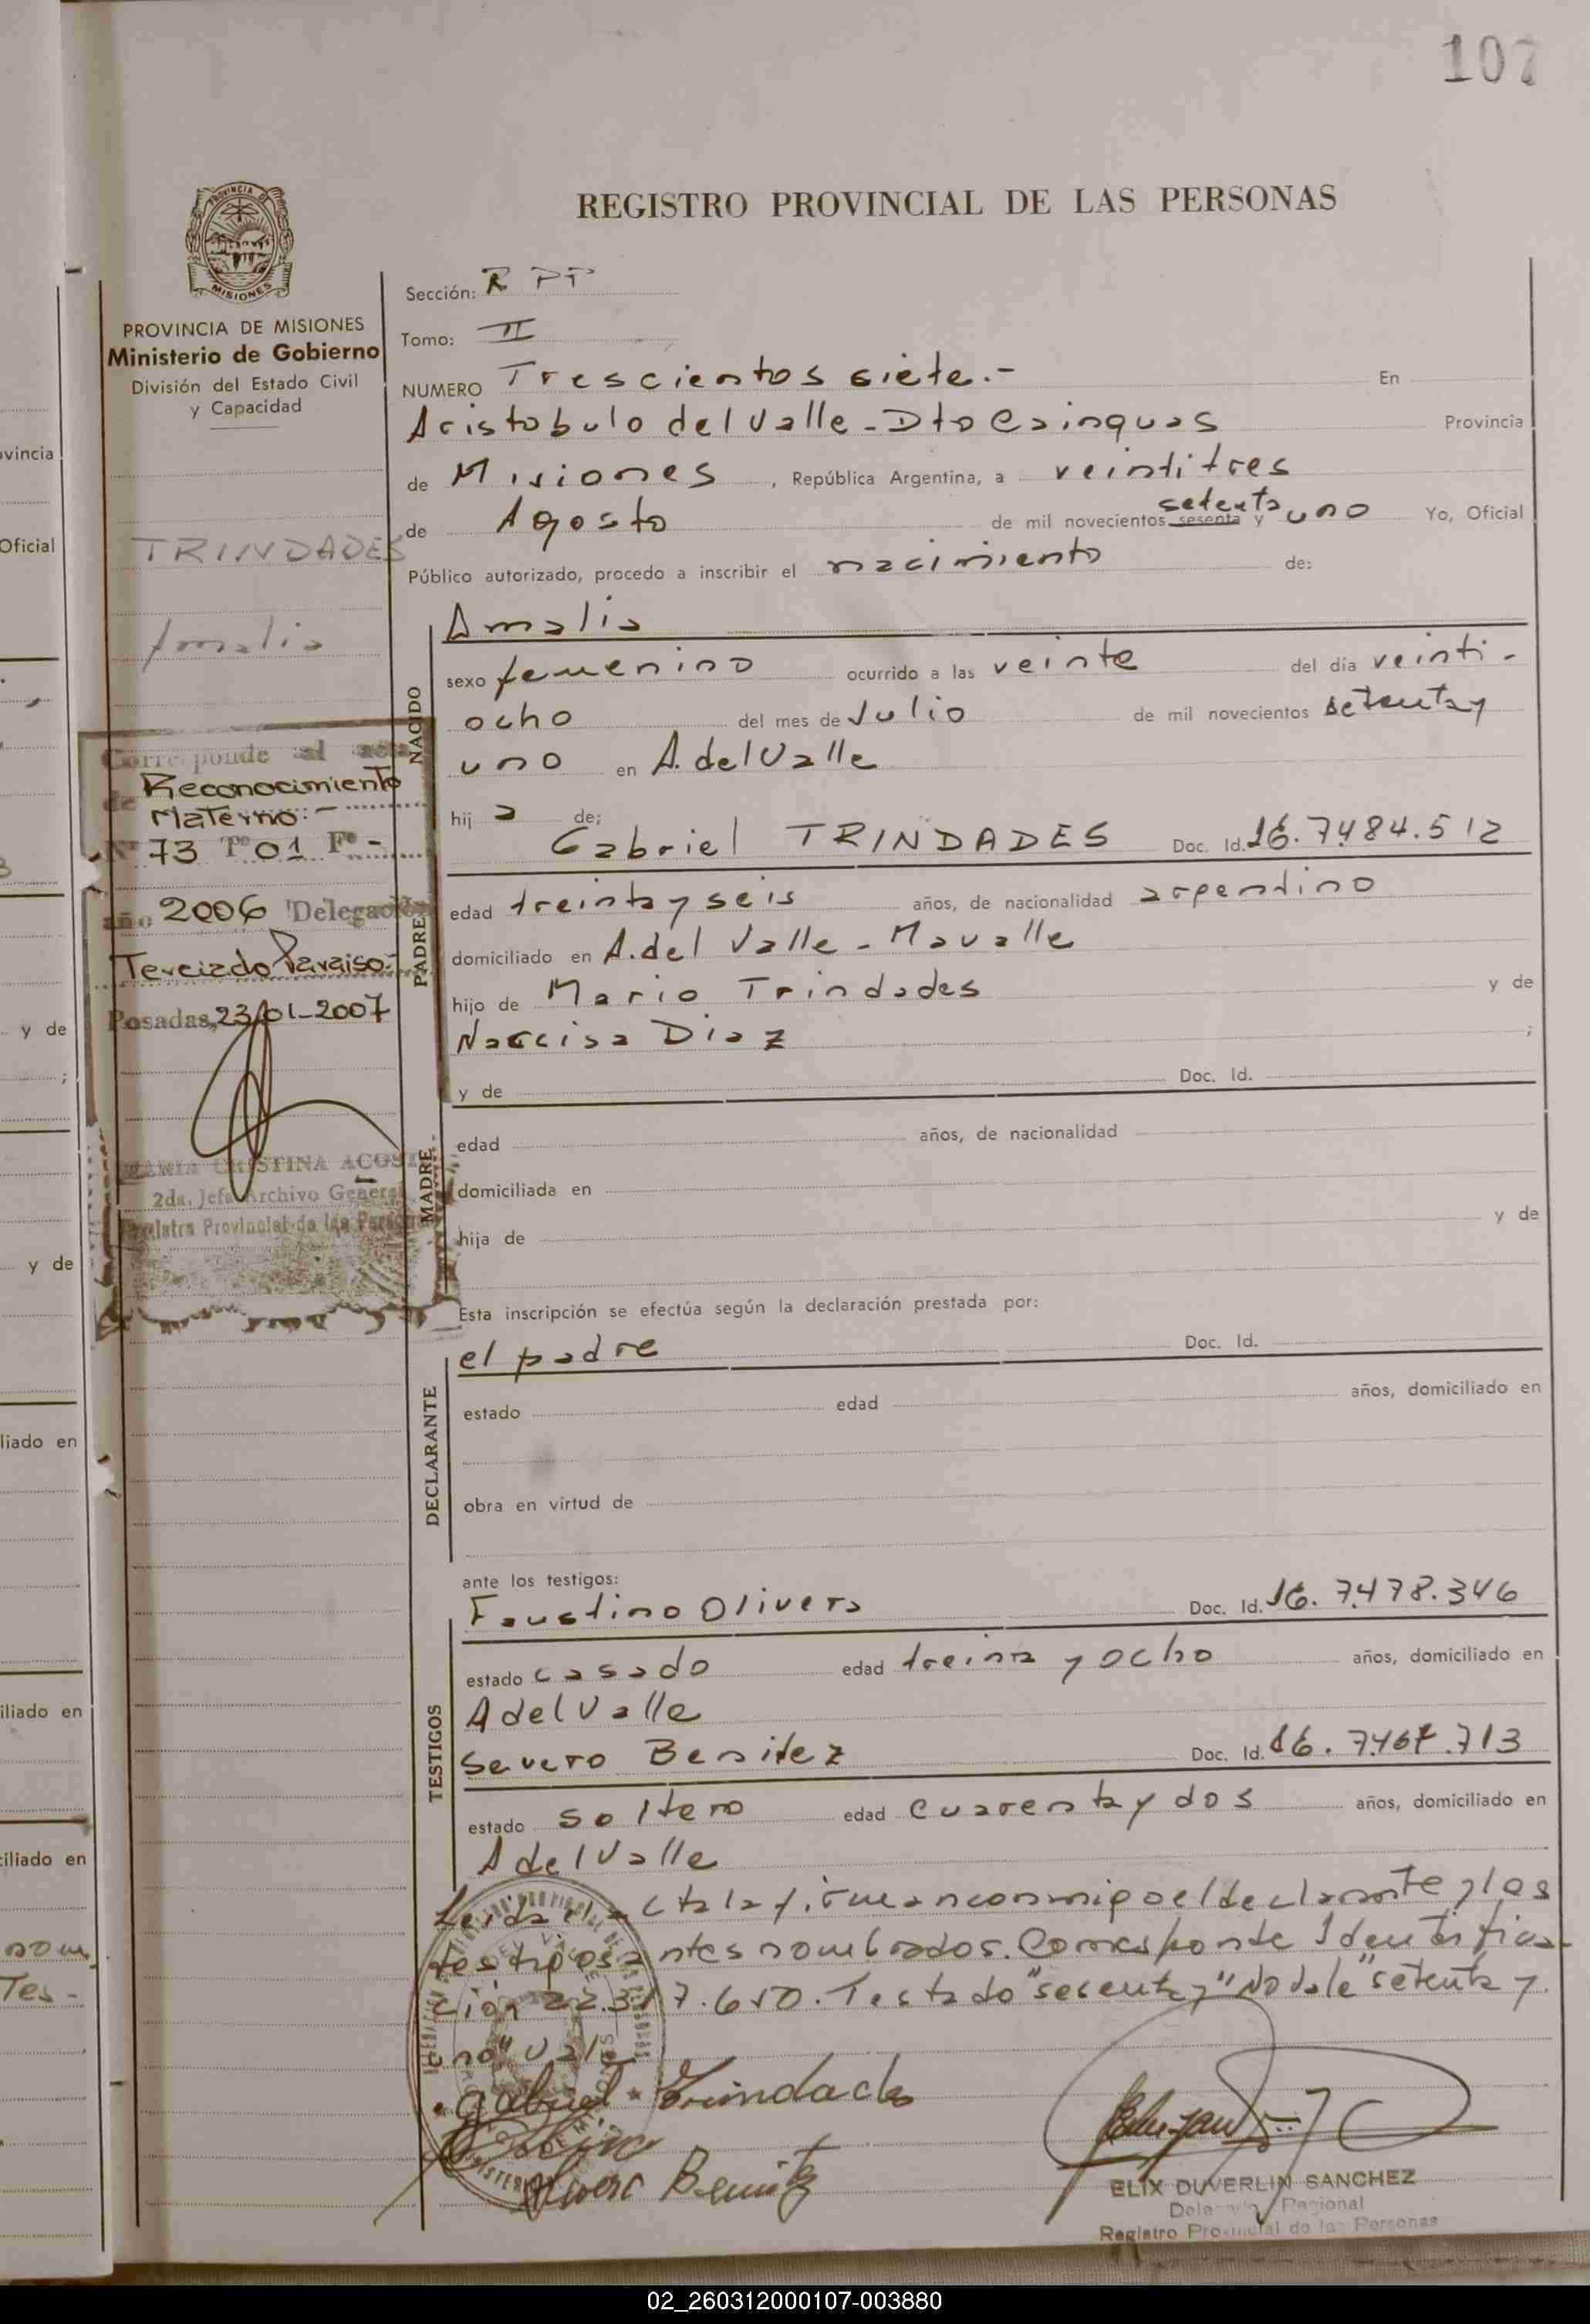 107
REGISTRO PROVINCIAL DE LAS PERSONAS
PROVINCIA DE MISIONES
Ministerio de Gobierno
División del Estado Civil
y Capacidad
TRINDADES
Amalia
Corresponde al acta
de Reconocimiento
Materno.-
Nº 73 Tº 01 Fº -
año 2006 Delegación
Terciado Paraiso.-
Posadas, 23/01-2007
MARIA CRISTINA ACOSTA
2da. Jefa Archivo General
Registro Provincial de las Personas
Sección: R PT
Tomo: II
NUMERO Trescientos siete.- En
Aristobulo del Valle - Dto Cainguas Provincia
de Misiones, República Argentina, a veintitres
de Agosto de mil novecientos sesenta y setenta uno Yo, Oficial
Público autorizado, procedo a inscribir el nacimiento de:
NACIDO
Amalia
sexo femenino ocurrido a las veinte del día veinti-
ocho del mes de Julio de mil novecientos setenta y
uno en A. del Valle
hij a de;
PADRE
Gabriel TRINDADES Doc. Id. 16.7484.512
edad treinta y seis años, de nacionalidad argentino
domiciliado en A. del Valle - Mavalle
hijo de Mario Trindades y de
Narcisa Diaz ;
y de Doc. Id.
MADRE
edad años, de nacionalidad
domiciliada en
hija de y de
Esta inscripción se efectúa según la declaración prestada por:
DECLARANTE
el padre Doc. Id.
estado edad años, domiciliado en
obra en virtud de
ante los testigos:
TESTIGOS
Faustino Olivera Doc. Id. 16. 7.478.346
estado casado edad treinta y ocho años, domiciliado en
A del Valle
Severo Benitez Doc. Id. 16. 7.467.713
estado soltero edad cuarenta y dos años, domiciliado en
A del Valle
Leida el acta la firman conmigo el declarante y los
testigos antes nombrados. Corresponde Identifica-
ción 22.317.650. Testado "sesenta y" No vale "setenta y
uno" vale
Gabriel Trindades
Severo Benitez
ELIX DUVERLIN SANCHEZ
Delegado Regional
Registro Provincial de las Personas
02_260312000107-003880